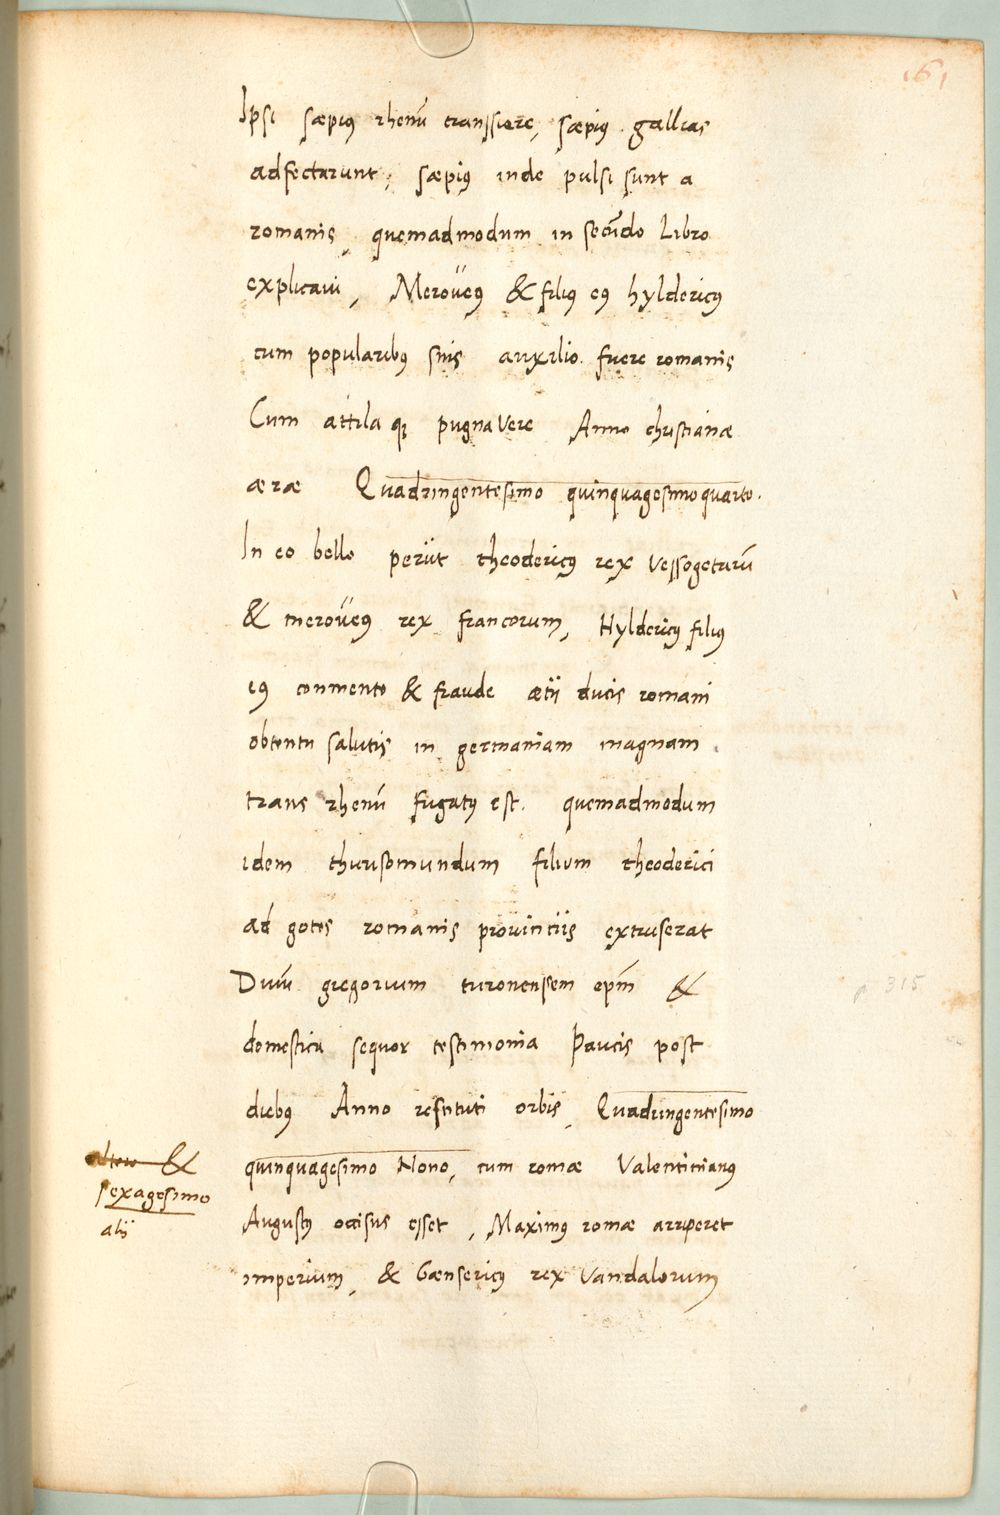 161
Ipsi sæpius rhenū transsiere, sæpius gallias
adfectarunt, sæpius inde pulsi sunt a
romanis, quemadmodum in secūdo Libro
explicaui, Meroveus & filius eꝰ hyldericus
cum popularibus suis auxilio fuere romanis
Cum attila qꝫ pugnavere Anno christianæ
æræ Quadringentesimo quinquagesimo quarto.
In eo bello periit theodericus rex Vessogetarū
& meroveus rex francorum, Hyldericus filius
eꝰ conmento & fraude ætii ducis romani
obtentu salutis in germaniam magnam
trans rhenū fugatus est. quemadmodum
idem thurisomundum filium theoderici
ad gotos romanis prouinciis extruserat
Diuū gregorium turonensem epm̄ &
domestica sequor testimonia Paucis post
diebus Anno restituti orbis, Quadringentesimo
quinquagesimo Nono, cum romæ Valentinianus
Augustus occisus esset, Maximus romæ arriperet
imperium, & Gænsericus rex Vandalorum
&
sexagesimo
alij
p 315